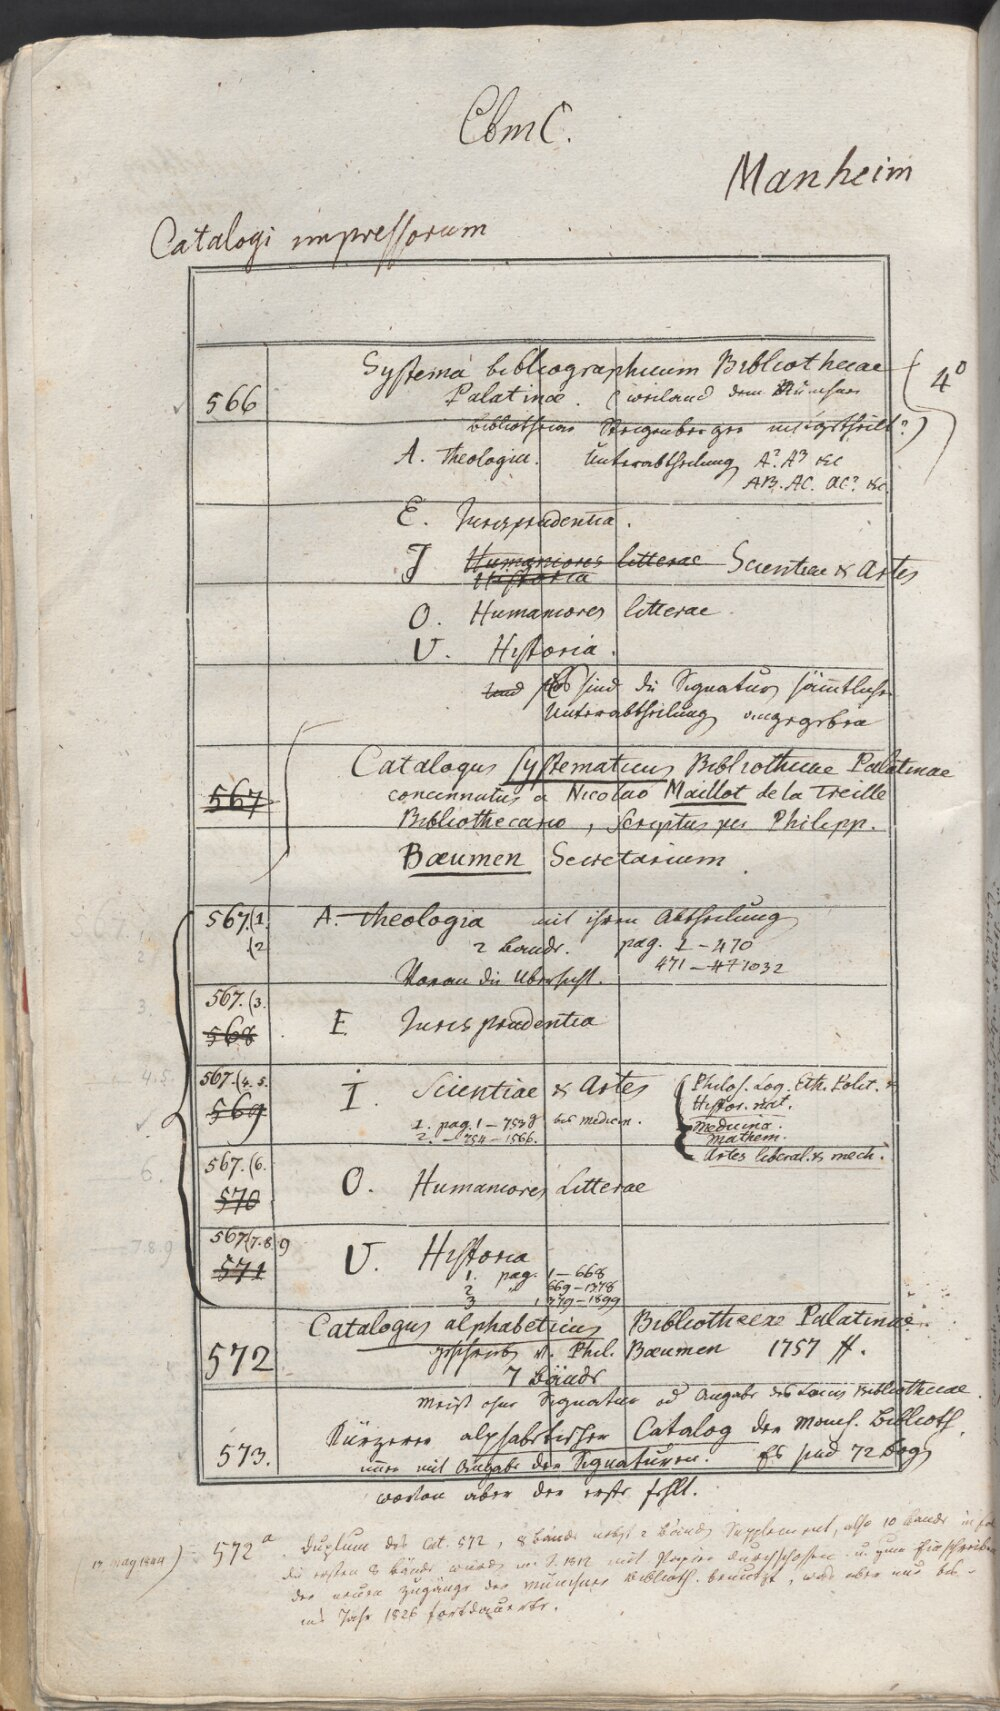 CbmC.
Manheim
Catalogi impressorum
566
Systema bibliographicum Bibliothecae
Palatinae. (weiland dem Münchner
Bibliothecar Steigenberger mitgetheilt?)
4°
A. Theologia. Unterabtheilung A² A³ &c
AB. AC. AC² &c.
E. Jurisprudentia.
J Humaniores litterae Scientiae & Artes
Historia
O. Humaniores litterae
U. Historia.
und sind die Signatur sämtlicher
Unterabtheilung angegeben
567
Catalogus systematicus Bibliothecae Palatinae
concinnatus a Nicolao Maillot de la Treille
Bibliothecario, scriptus per Philipp.
Baeumen Secretarium
567.(1. A. Theologia mit ihren Abtheilung
(2 2 Bände. pag. 1-470
471 - 1032
Voran die Übersicht.
567.(3.
568 E Jurisprudentia
567.(4. 5.
569 I. Scientiae & Artes
1. pag. 1 - 753 bis Medicin.
2. - 754 - 1566.
Philos. Log. Eth. Polit. &
Histor. nat.
Medicina.
Mathem.
Artes liberal. & mech.
567.(6.
570 O. Humaniores Litterae
567(7.8)9
571 U. Historia
1. pag. 1 - 668
2 " 669 - 1378
3 1379 - 1899
572 Catalogus alphabeticus Bibliothecae Palatinae
geschrieb. v. Phil. Baeumen 1757 ff.
7 Bände
meist ohne Signatur od Angabe des Locus Bibliothecae.
573. Kürzerer alphabetischer Catalog der Manh. Biblioth.
immer mit Angabe der Signaturen. Es sind 72 Bog
wovon aber der erste fehlt.
(17 May 1844) 572 a. Duplum des Cat. 572, 8 Bände nebst 2 Bände Supplement, also 10 Bände in fol
die ersten 8 Bände wurden im J. 1812 mit Papier durchschossen u. zum Einschreiben
der neuen Zugänge der Münchner Biblioth. benutzt, was aber nur bis
ins Jahr 1826 fortdauerte.
1.
2
3.
4. 5.
6.
7. 8. 9